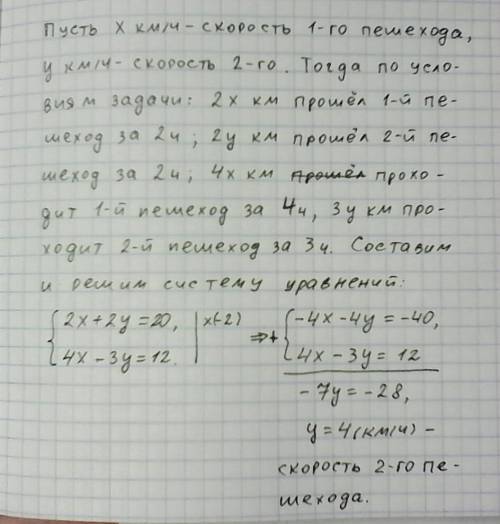 Пусть х км/ч – скорость 1-го пешехода,
у км/ч – скорость 2-го. Тогда по усло-
виям задачи: 2х км прошёл 1-й пе-
шеход за 2ч; 2у км прошёл 2-й пе-
шеход за 2ч; 4х км прошёл прохо-
дит 1-й пешеход за 4ч, 3у км про-
ходит 2-й пешеход за 3ч. Составим
и решим систему уравнений:
{2х+2у=20, |х(-2) ⇒ + {-4х-4у=-40,
{4х-3у=12. | {4х-3у=12
-7у=-28,
у=4(км/ч) –
скорость 2-го пе-
шехода.